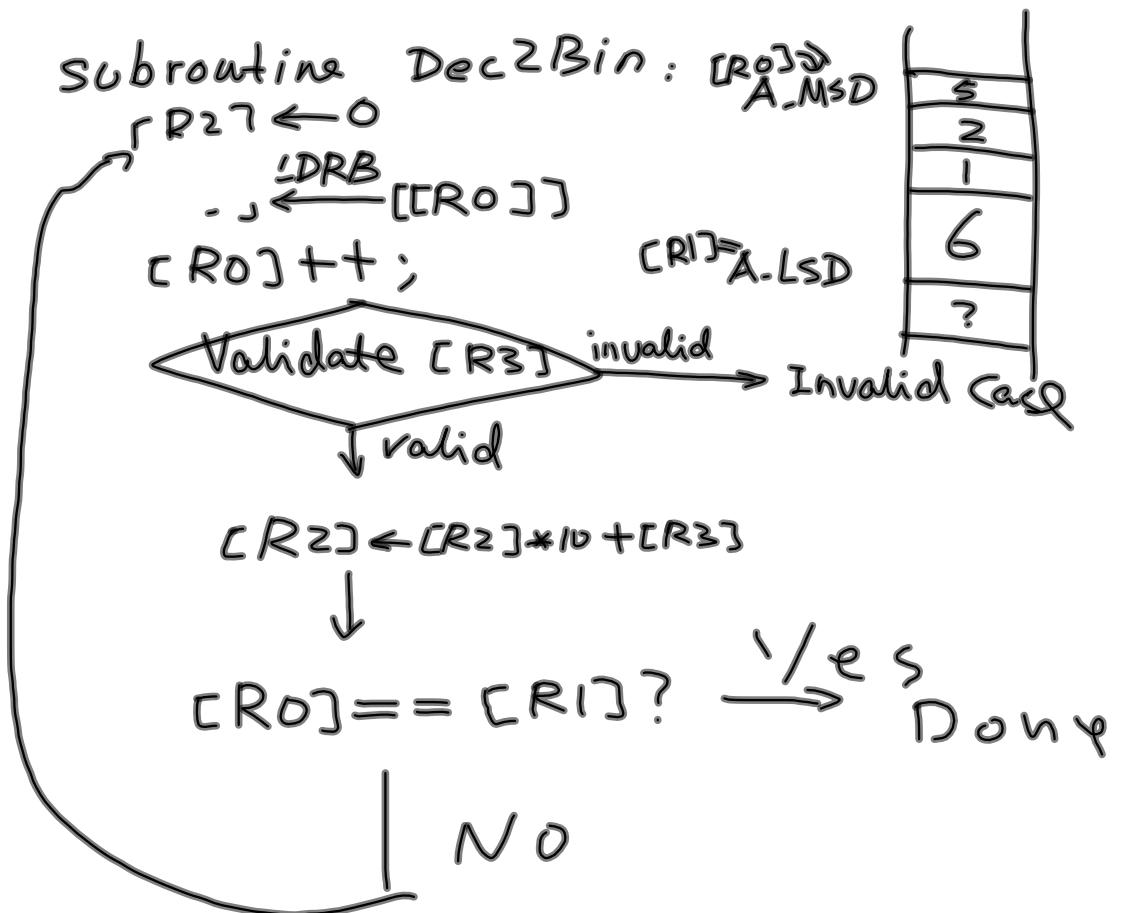 Subroutine Dec2Bin: [R0]⇒
A_MSD
[R2] ← 0
LDRB
← [[R0]]
[R0]++;
[R1]=
A_LSD
5
2
1
6
?
Validate [R3]
invalid
Invalid Case
valid
[R2] ← [R2]*10+[R3]
[R0]== [R1]?
Yes
Done
NO